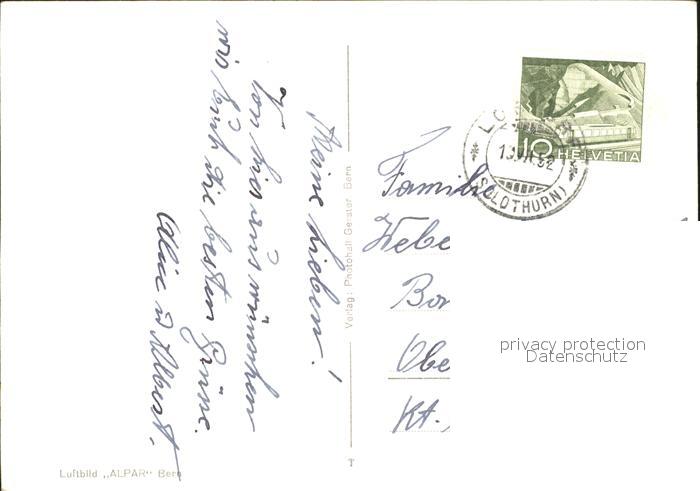 Meine Lieben!
Von hier aus wünschen
wir Euch die besten Grüsse.
Alice u Albert.
Verlag: Photohall Gerster Bern
Luftbild „ALPAR" Bern
T
10 HELVETIA
(SOLOTHURN)
Familie
Webe
Bor
Obe
Kt.,
privacy protection
Datenschutz